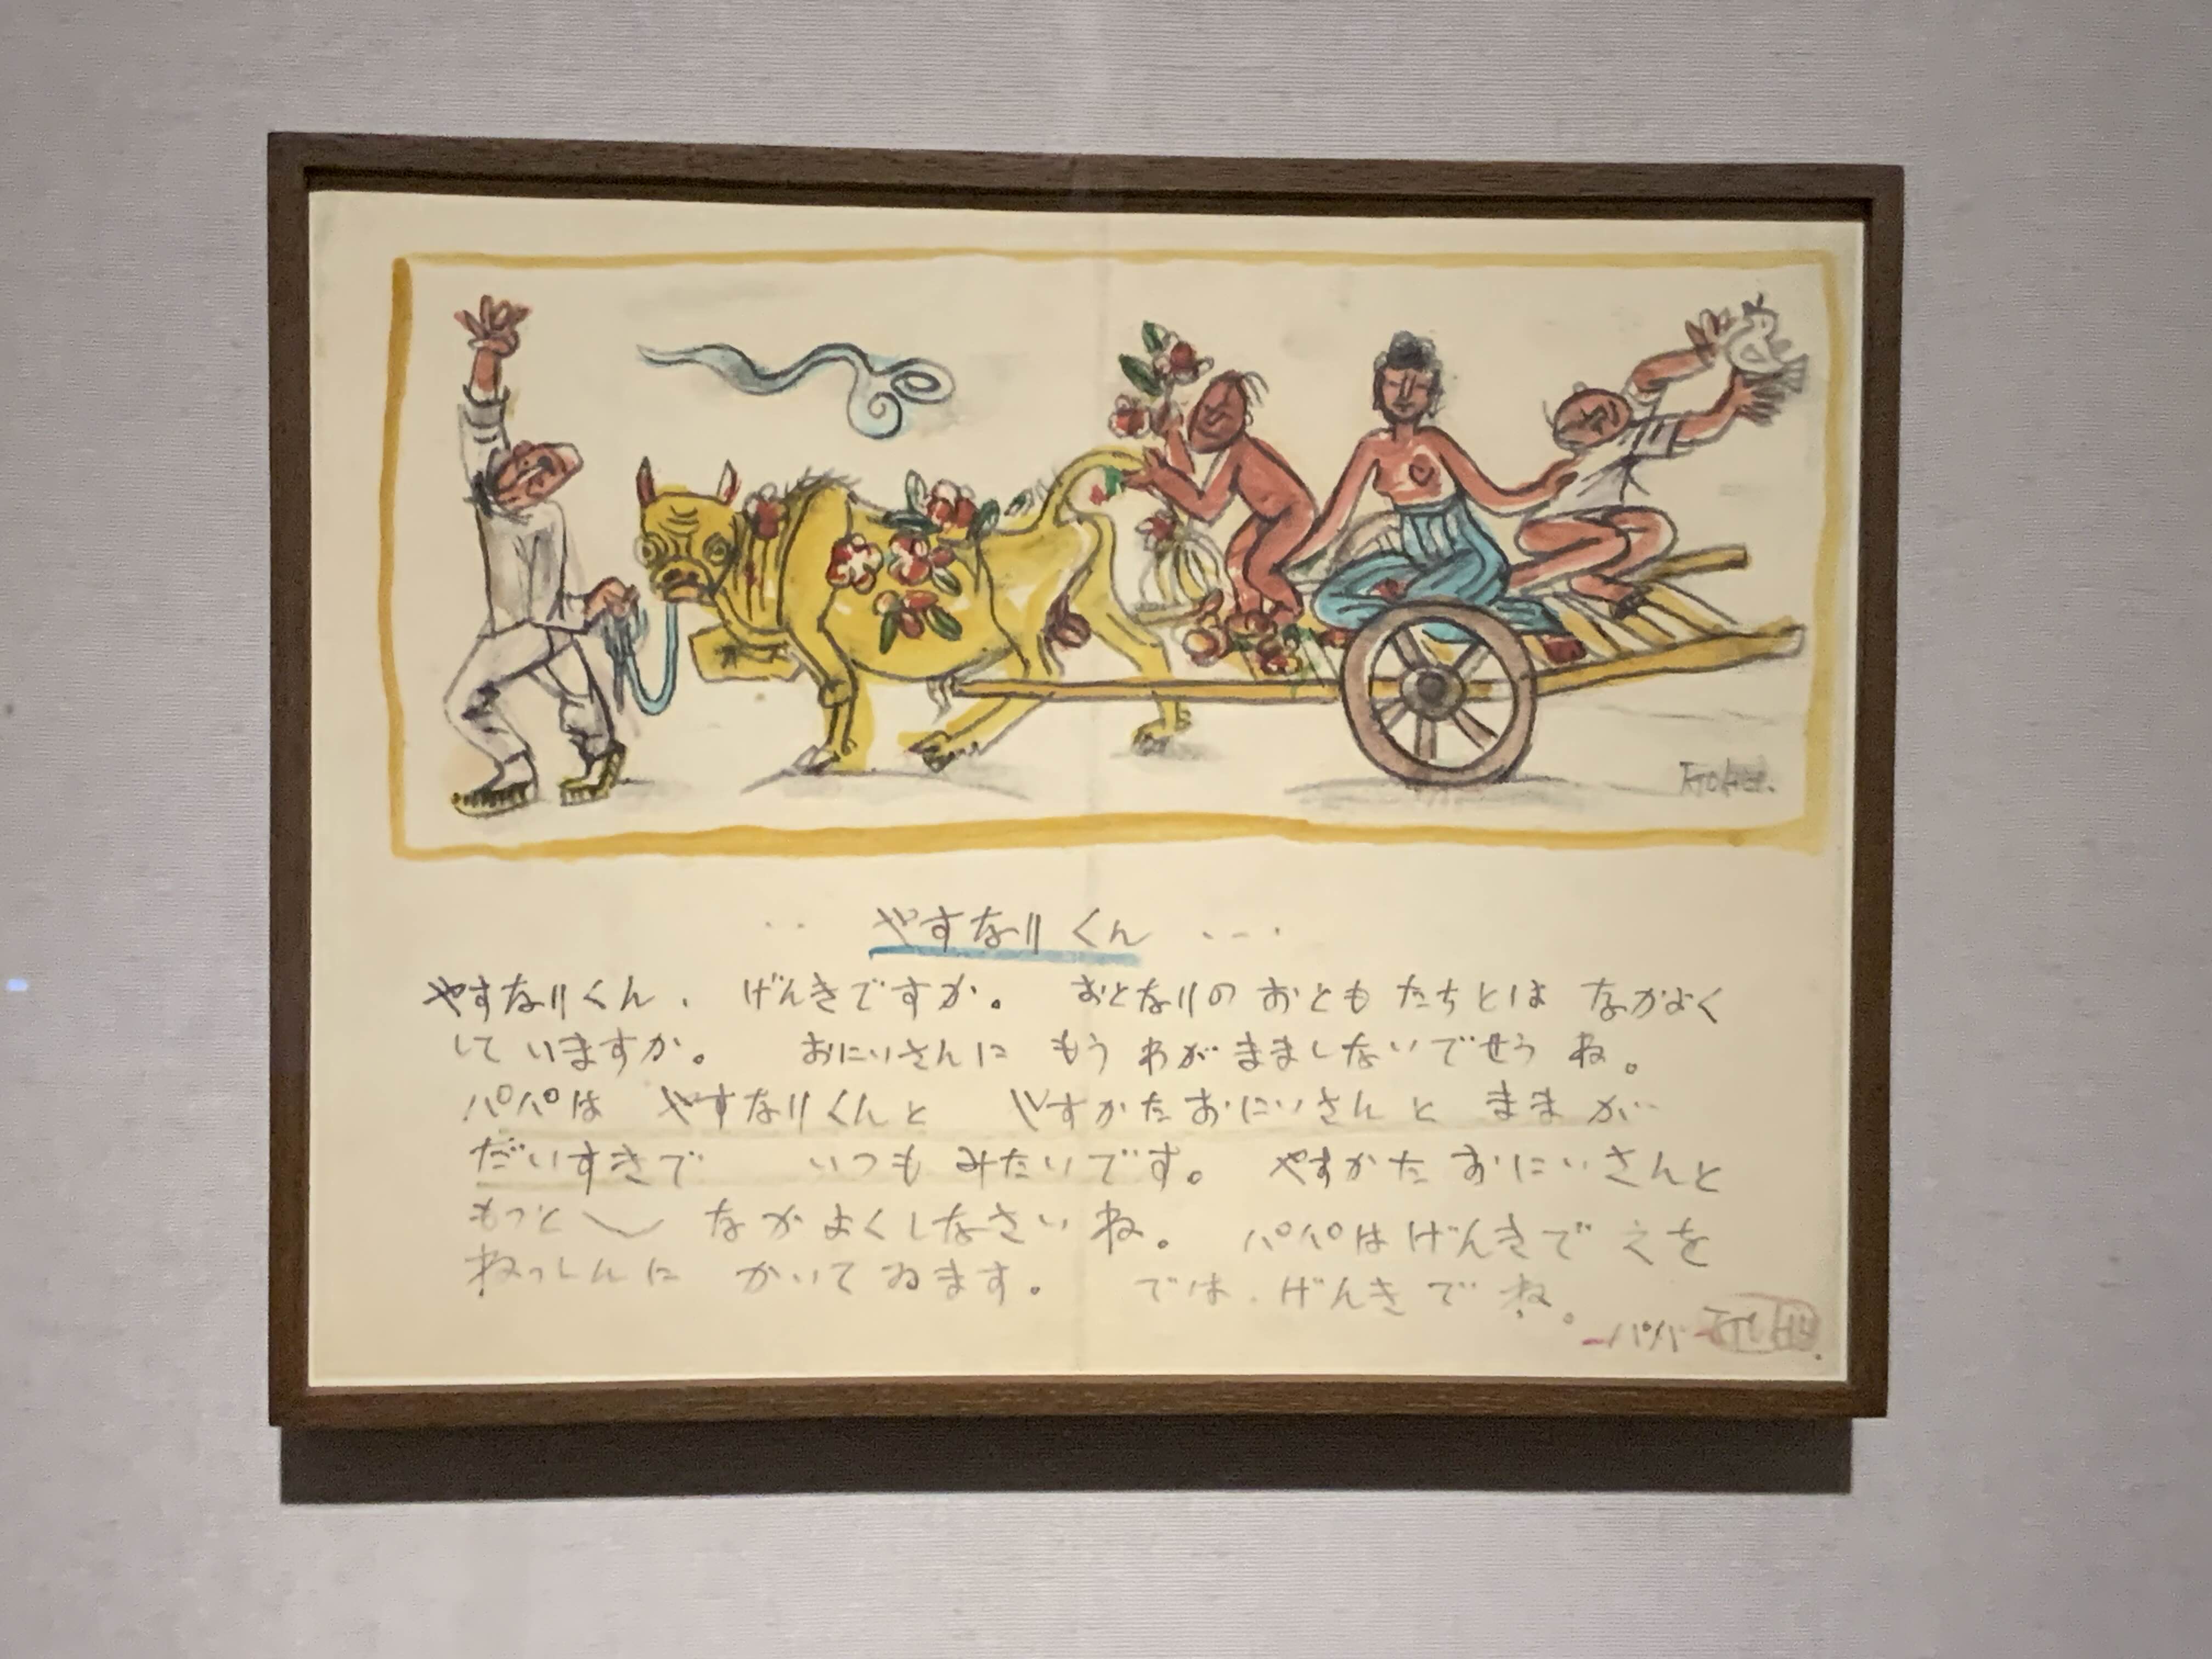 やすなりくん
やすなりくん、げんきですか。 おとなりの おともだちとは なかよく
して いますか。 おにいさんに もう わがまましないでせう ね。
パパは やすなりくんと やすかたおにいさんと ままが
だいすきで いつも みたいです。 やすかた おにいさんと
もっと〳〵 なかよくしなさい ね。 パパは げんきで えを
ねっしんに かいて ゐます。 では、げんきで ね。
パパ